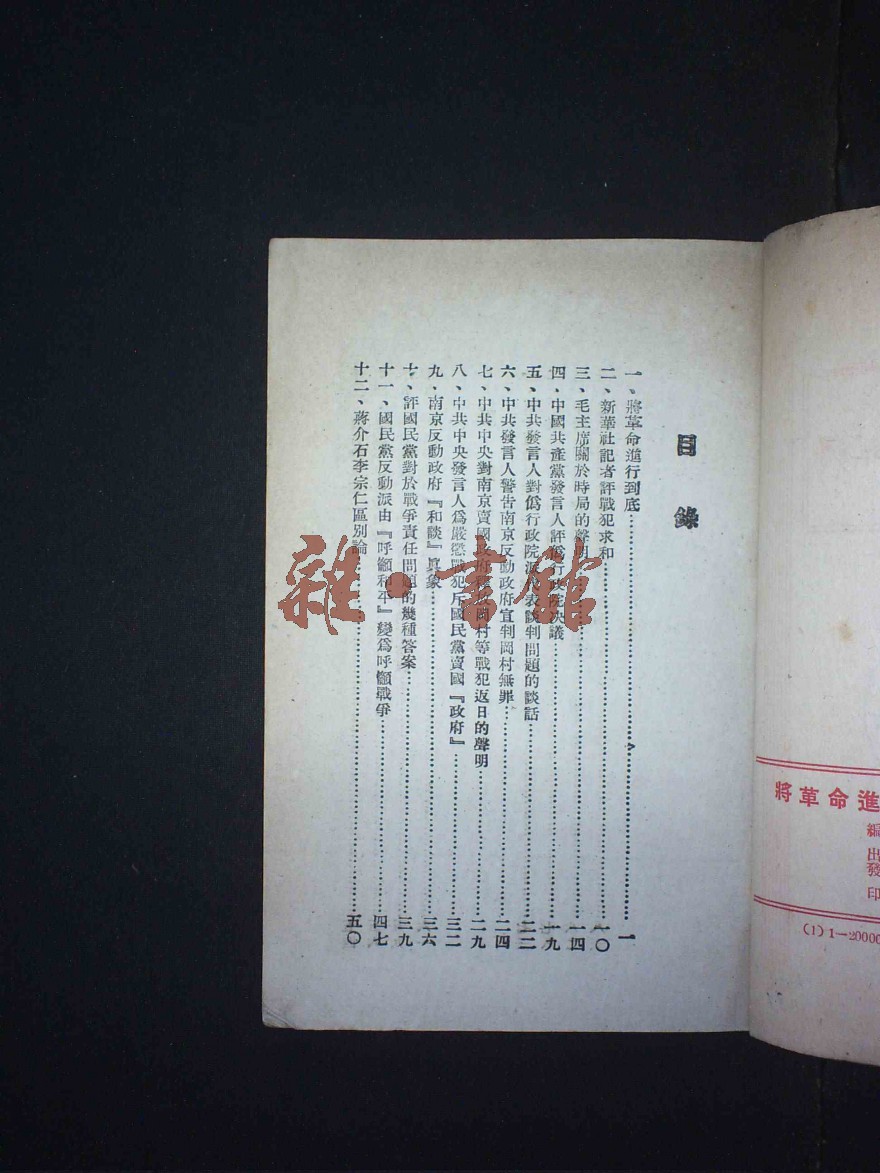 目錄
一、將革命進行到底……一
二、新華社記者評戰犯求和……一〇
三、毛主席關於時局的聲明……一四
四、中國共產黨發言人評僞行政院決議……一九
五、中共發言人對僞行政院派代表談判問題的談話……二二
六、中共發言人警告南京反動政府宣判岡村無罪……二四
七、中共中央對南京賣國政府釋放岡村等戰犯返日的聲明……二九
八、中共中央發言人爲嚴懲戰犯斥國民黨賣國『政府』……三二
九、南京反動政府『和談』眞象……三六
十、評國民黨對於戰爭責任問題的幾種答案……三九
十一、國民黨反動派由『呼籲和平』變爲呼籲戰爭……四七
十二、蔣介石李宗仁區別論……五〇
雜·書館
將革命進
編
出
發
印
(1)1—20000